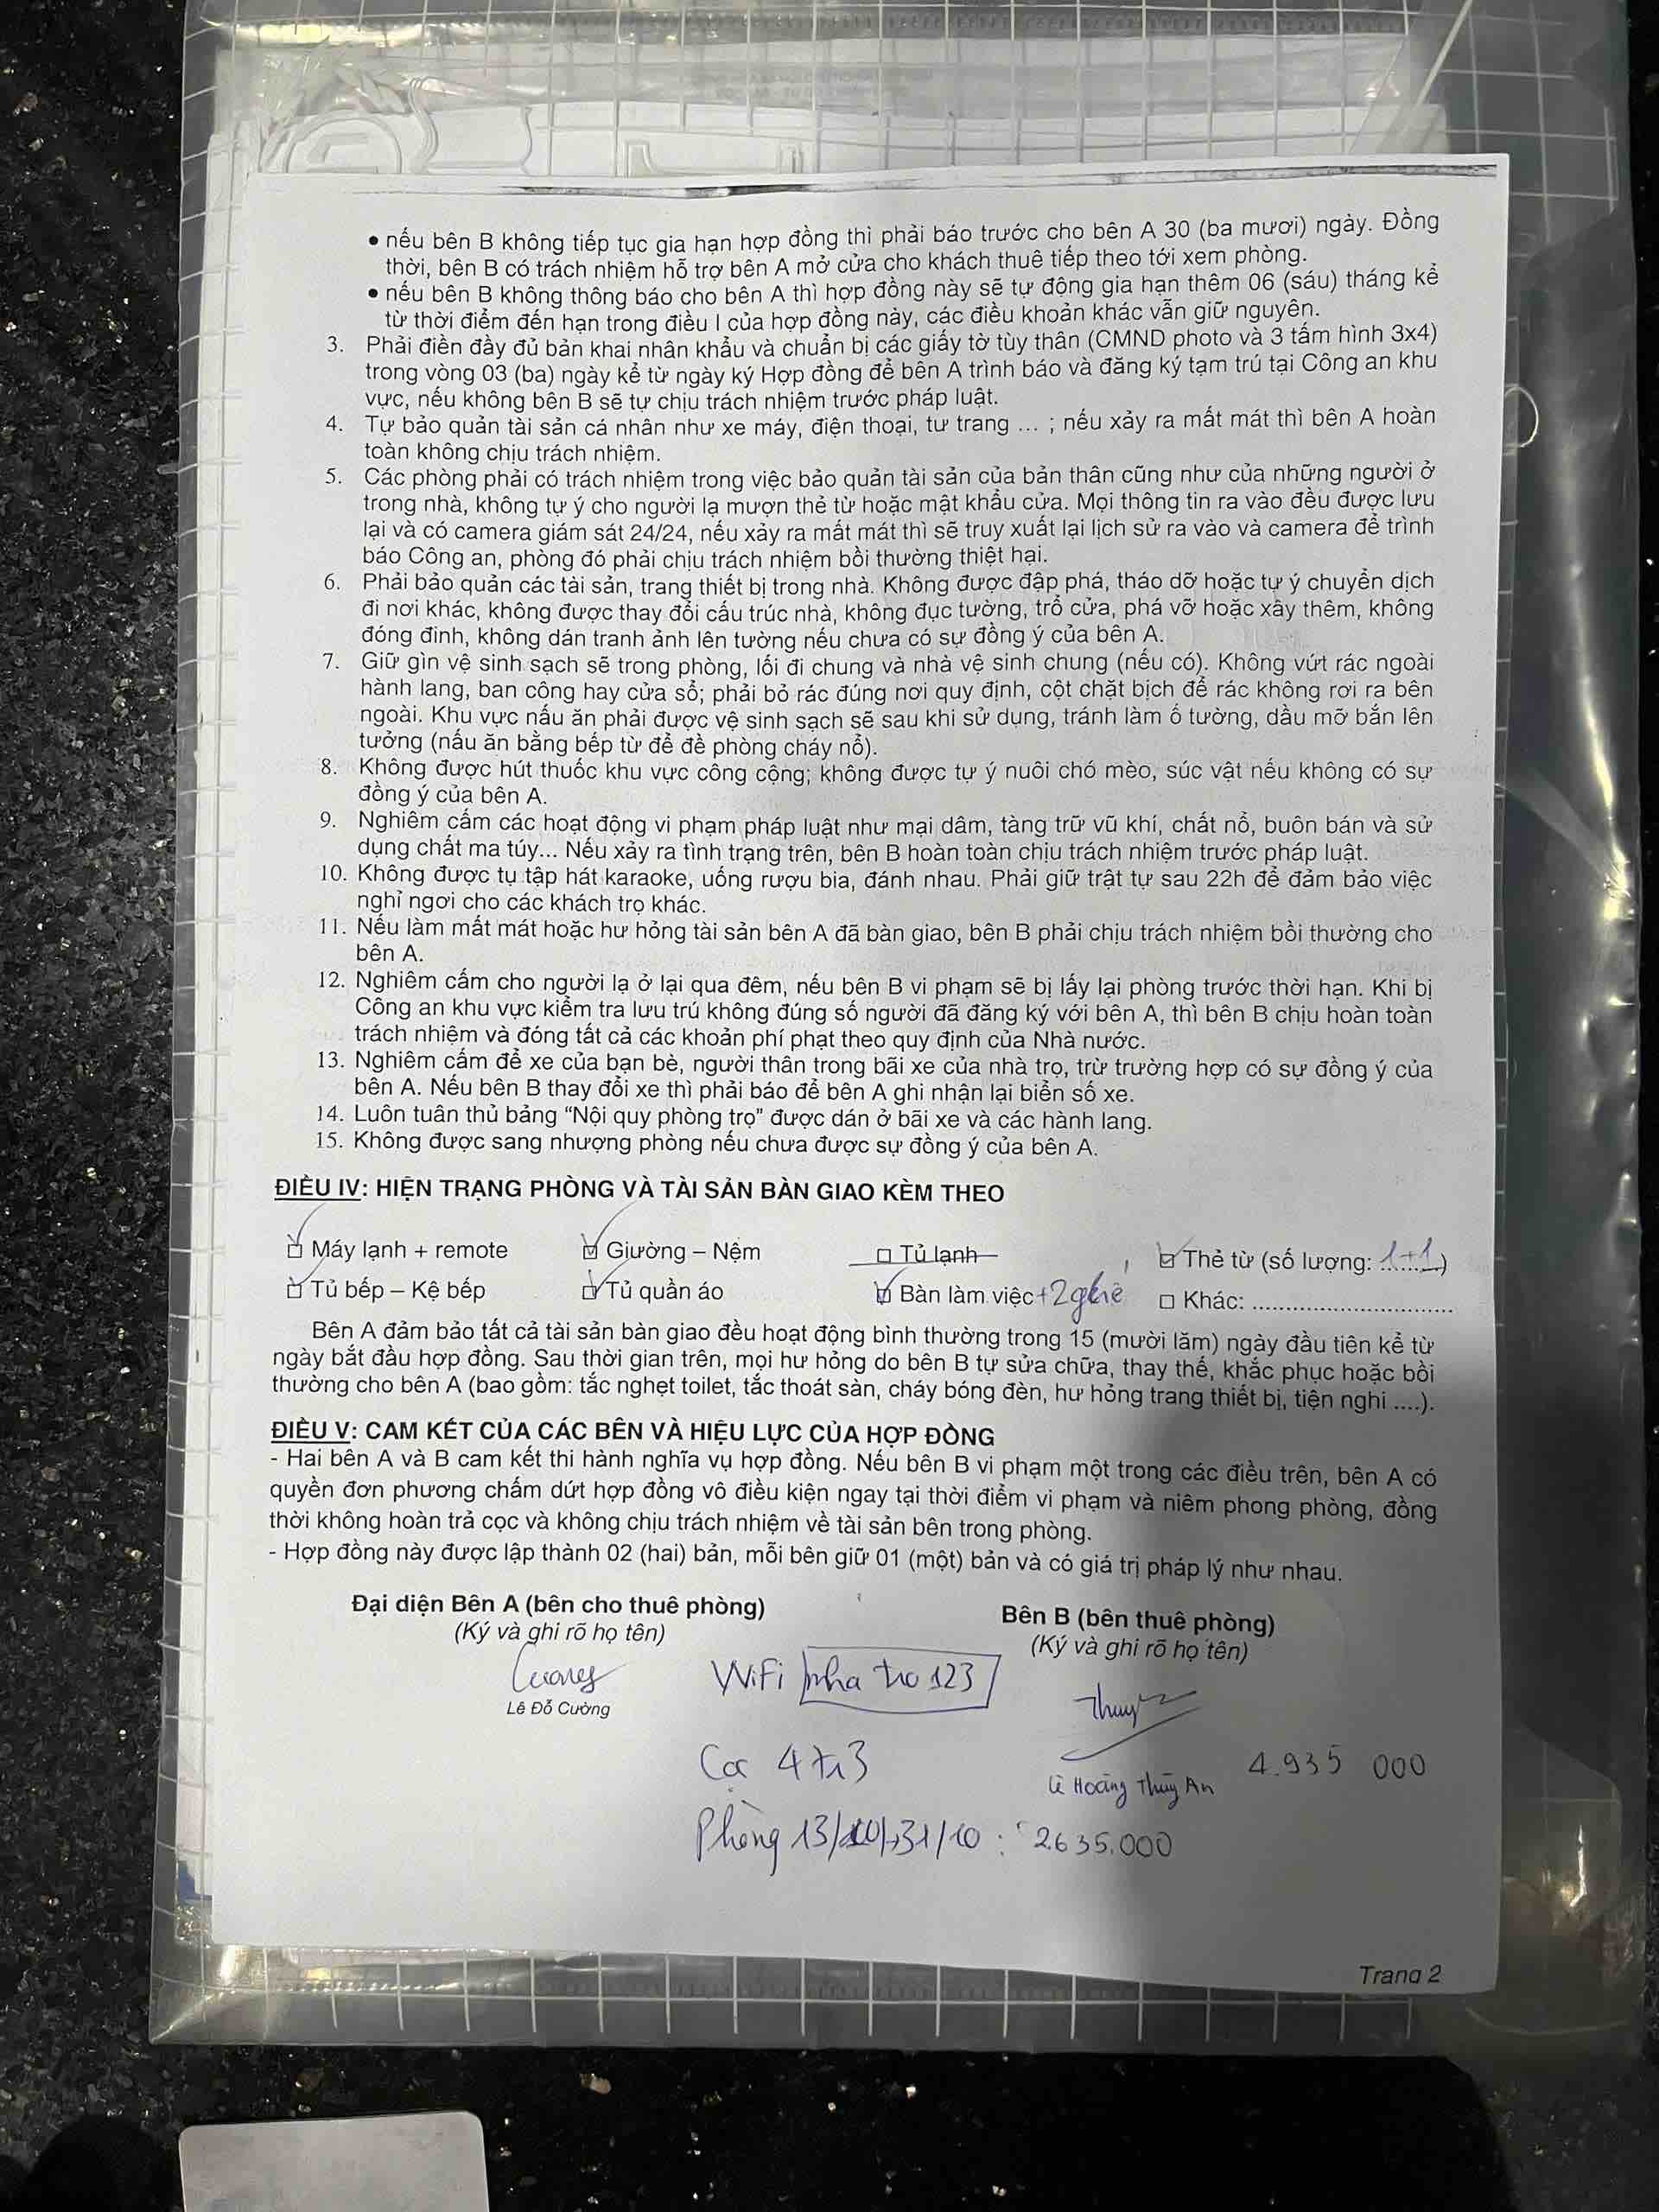 • nếu bên B không tiếp tục gia hạn hợp đồng thì phải báo trước cho bên A 30 (ba mươi) ngày. Đồng
thời, bên B có trách nhiệm hỗ trợ bên A mở cửa cho khách thuê tiếp theo tới xem phòng.
• nếu bên B không thông báo cho bên A thì hợp đồng này sẽ tự động gia hạn thêm 06 (sáu) tháng kể
từ thời điểm đến hạn trong điều I của hợp đồng này, các điều khoản khác vẫn giữ nguyên.
3. Phải điền đầy đủ bản khai nhân khẩu và chuẩn bị các giấy tờ tùy thân (CMND photo và 3 tấm hình 3x4)
trong vòng 03 (ba) ngày kể từ ngày ký Hợp đồng để bên A trình báo và đăng ký tạm trú tại Công an khu
vực, nếu không bên B sẽ tự chịu trách nhiệm trước pháp luật.
4. Tự bảo quản tài sản cá nhân như xe máy, điện thoại, tư trang ... ; nếu xảy ra mất mát thì bên A hoàn
toàn không chịu trách nhiệm.
5. Các phòng phải có trách nhiệm trong việc bảo quản tài sản của bản thân cũng như của những người ở
trong nhà, không tự ý cho người lạ mượn thẻ từ hoặc mật khẩu cửa. Mọi thông tin ra vào đều được lưu
lại và có camera giám sát 24/24, nếu xảy ra mất mát thì sẽ truy xuất lại lịch sử ra vào và camera để trình
báo Công an, phòng đó phải chịu trách nhiệm bồi thường thiệt hại.
6. Phải bảo quản các tài sản, trang thiết bị trong nhà. Không được đập phá, tháo dỡ hoặc tự ý chuyển dịch
đi nơi khác, không được thay đổi cấu trúc nhà, không đục tường, trổ cửa, phá vỡ hoặc xây thêm, không
đóng đinh, không dán tranh ảnh lên tường nếu chưa có sự đồng ý của bên A.
7. Giữ gìn vệ sinh sạch sẽ trong phòng, lối đi chung và nhà vệ sinh chung (nếu có). Không vứt rác ngoài
hành lang, ban công hay cửa sổ; phải bỏ rác đúng nơi quy định, cột chặt bịch để rác không rơi ra bên
ngoài. Khu vực nấu ăn phải được vệ sinh sạch sẽ sau khi sử dụng, tránh làm ố tường, dầu mỡ bắn lên
tưởng (nấu ăn bằng bếp từ để đề phòng cháy nổ).
8. Không được hút thuốc khu vực công cộng; không được tự ý nuôi chó mèo, súc vật nếu không có sự
đồng ý của bên A.
9. Nghiêm cấm các hoạt động vi phạm pháp luật như mại dâm, tàng trữ vũ khí, chất nổ, buôn bán và sử
dụng chất ma túy... Nếu xảy ra tình trạng trên, bên B hoàn toàn chịu trách nhiệm trước pháp luật.
10. Không được tụ tập hát karaoke, uống rượu bia, đánh nhau. Phải giữ trật tự sau 22h để đảm bảo việc
nghỉ ngơi cho các khách trọ khác.
11. Nếu làm mất mát hoặc hư hỏng tài sản bên A đã bàn giao, bên B phải chịu trách nhiệm bồi thường cho
bên A.
12. Nghiêm cấm cho người lạ ở lại qua đêm, nếu bên B vi phạm sẽ bị lấy lại phòng trước thời hạn. Khi bị
Công an khu vực kiểm tra lưu trú không đúng số người đã đăng ký với bên A, thì bên B chịu hoàn toàn
trách nhiệm và đóng tất cả các khoản phí phạt theo quy định của Nhà nước.
13. Nghiêm cấm để xe của bạn bè, người thân trong bãi xe của nhà trọ, trừ trường hợp có sự đồng ý của
bên A. Nếu bên B thay đổi xe thì phải báo để bên A ghi nhận lại biển số xe.
14. Luôn tuân thủ bảng “Nội quy phòng trọ” được dán ở bãi xe và các hành lang.
15. Không được sang nhượng phòng nếu chưa được sự đồng ý của bên A.
ĐIỀU IV: HIỆN TRẠNG PHÒNG VÀ TÀI SẢN BÀN GIAO KÈM THEO
☑ Máy lạnh + remote ☑ Giường – Nệm □ Tủ lạnh ☑ Thẻ từ (số lượng: 1+1)
☑ Tủ bếp – Kệ bếp ☑ Tủ quần áo ☑ Bàn làm việc +2 ghế □ Khác: ..............................
Bên A đảm bảo tất cả tài sản bàn giao đều hoạt động bình thường trong 15 (mười lăm) ngày đầu tiên kể từ
ngày bắt đầu hợp đồng. Sau thời gian trên, mọi hư hỏng do bên B tự sửa chữa, thay thế, khắc phục hoặc bồi
thường cho bên A (bao gồm: tắc nghẹt toilet, tắc thoát sàn, cháy bóng đèn, hư hỏng trang thiết bị, tiện nghi ....).
ĐIỀU V: CAM KẾT CỦA CÁC BÊN VÀ HIỆU LỰC CỦA HỢP ĐỒNG
- Hai bên A và B cam kết thi hành nghĩa vụ hợp đồng. Nếu bên B vi phạm một trong các điều trên, bên A có
quyền đơn phương chấm dứt hợp đồng vô điều kiện ngay tại thời điểm vi phạm và niêm phong phòng, đồng
thời không hoàn trả cọc và không chịu trách nhiệm về tài sản bên trong phòng.
- Hợp đồng này được lập thành 02 (hai) bản, mỗi bên giữ 01 (một) bản và có giá trị pháp lý như nhau.
Đại diện Bên A (bên cho thuê phòng) Bên B (bên thuê phòng)
(Ký và ghi rõ họ tên) (Ký và ghi rõ họ tên)
Cuong WiFi nha tro 123 Thuy
Lê Đỗ Cường
Cọc 4tr3 Lê Hoàng Thùy An 4.935 000
Phòng 13/10→31/10 : 2.635.000
Trang 2